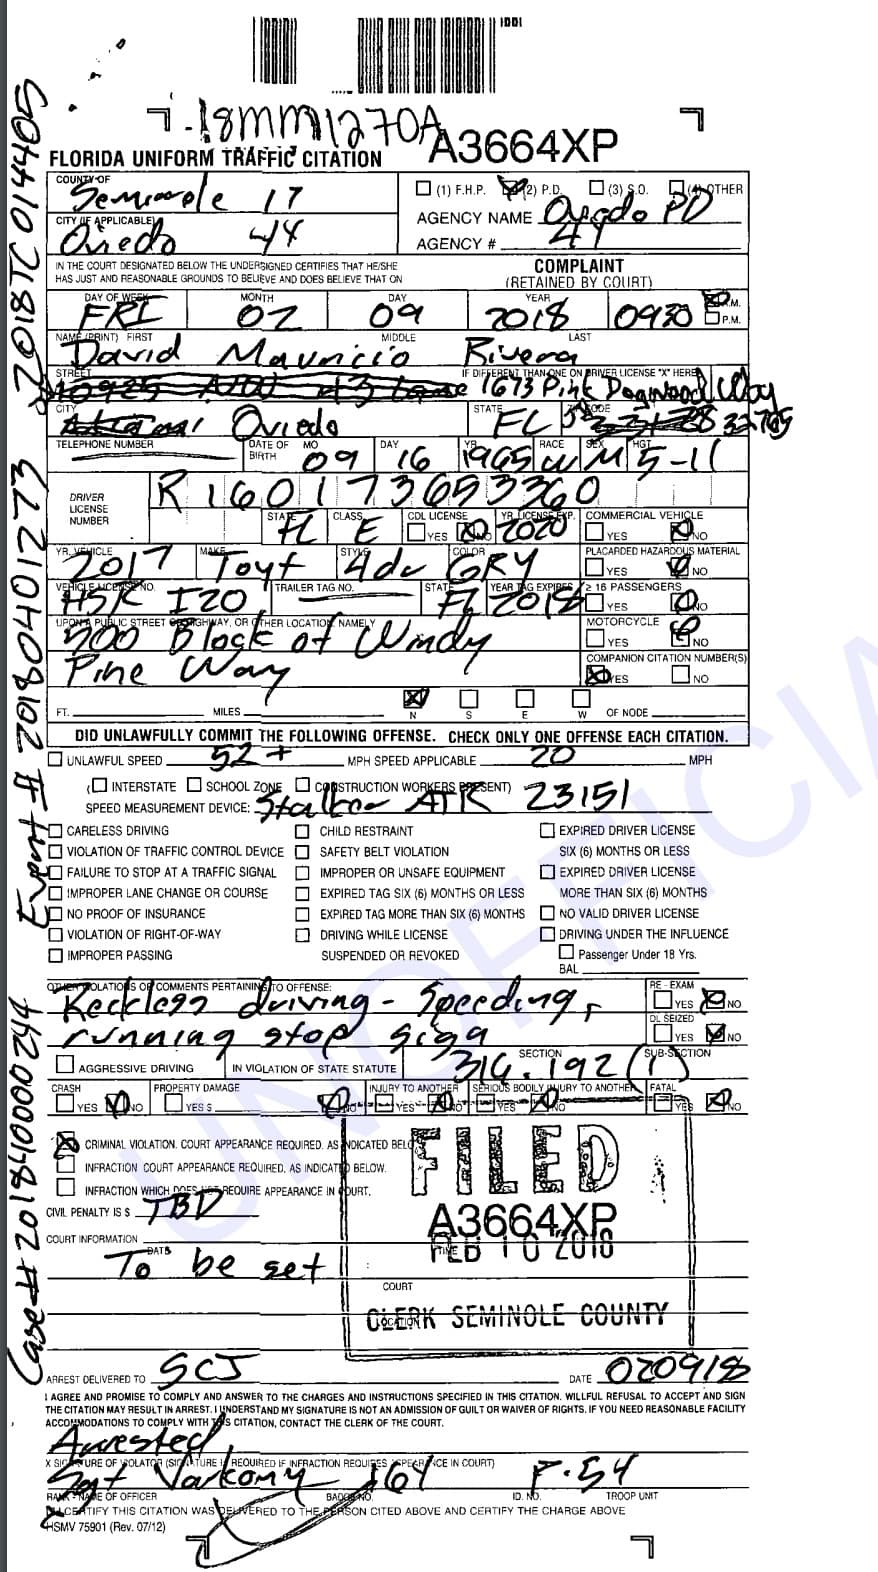 1001
18MM1270A
A3664XP
FLORIDA UNIFORM TRAFFIC CITATION
COUNTY OF Seminole 17
(1) F.H.P. (2) P.D. (3) S.O. (4) OTHER
CITY (IF APPLICABLE) Oviedo 44
AGENCY NAME Oviedo PD
AGENCY # 44
IN THE COURT DESIGNATED BELOW THE UNDERSIGNED CERTIFIES THAT HE/SHE
HAS JUST AND REASONABLE GROUNDS TO BELIEVE AND DOES BELIEVE THAT ON
COMPLAINT
(RETAINED BY COURT)
DAY OF WEEK MONTH DAY YEAR A.M.
FRI 02 09 2018 0930 P.M.
NAME (PRINT) FIRST MIDDLE LAST
David Mauricio Rivera
STREET IF DIFFERENT THAN ONE ON DRIVER LICENSE "X" HERE
1673 Pink Dogwood Way
CITY STATE ZIP CODE
Oviedo FL 32765
TELEPHONE NUMBER DATE OF BIRTH MO DAY YR RACE SEX HGT
09 16 1965 W M 5-11
DRIVER LICENSE NUMBER R160173653360
STATE CLASS CDL LICENSE YR. LICENSE EXP. COMMERCIAL VEHICLE
FL E YES NO 2020 YES NO
YR. VEHICLE MAKE STYLE COLOR PLACARDED HAZARDOUS MATERIAL
2017 Toyt 4dr GRY YES NO
VEHICLE LICENSE NO. TRAILER TAG NO. STATE YEAR TAG EXPIRES ≥ 16 PASSENGERS
I20 FL 2018 YES NO
UPON A PUBLIC STREET OR HIGHWAY, OR OTHER LOCATION, NAMELY MOTORCYCLE
500 Block of Windy YES NO
Pine Way COMPANION CITATION NUMBER(S)
YES NO
FT. MILES N S E W OF NODE
DID UNLAWFULLY COMMIT THE FOLLOWING OFFENSE. CHECK ONLY ONE OFFENSE EACH CITATION.
UNLAWFUL SPEED 52+ MPH SPEED APPLICABLE 20 MPH
( INTERSTATE SCHOOL ZONE CONSTRUCTION WORKERS PRESENT)
SPEED MEASUREMENT DEVICE: Stalker ATR 23151
CARELESS DRIVING CHILD RESTRAINT EXPIRED DRIVER LICENSE
VIOLATION OF TRAFFIC CONTROL DEVICE SAFETY BELT VIOLATION SIX (6) MONTHS OR LESS
FAILURE TO STOP AT A TRAFFIC SIGNAL IMPROPER OR UNSAFE EQUIPMENT EXPIRED DRIVER LICENSE
IMPROPER LANE CHANGE OR COURSE EXPIRED TAG SIX (6) MONTHS OR LESS MORE THAN SIX (6) MONTHS
NO PROOF OF INSURANCE EXPIRED TAG MORE THAN SIX (6) MONTHS NO VALID DRIVER LICENSE
VIOLATION OF RIGHT-OF-WAY DRIVING WHILE LICENSE DRIVING UNDER THE INFLUENCE
IMPROPER PASSING SUSPENDED OR REVOKED Passenger Under 18 Yrs.
BAL
OTHER VIOLATIONS OR COMMENTS PERTAINING TO OFFENSE: RE - EXAM
Reckless driving - Speeding, YES NO
running stop sign DL SEIZED
YES NO
AGGRESSIVE DRIVING IN VIOLATION OF STATE STATUTE SECTION SUB-SECTION
316.192(1)
CRASH PROPERTY DAMAGE INJURY TO ANOTHER SERIOUS BODILY INJURY TO ANOTHER FATAL
YES NO YES $ NO YES NO YES NO YES NO
CRIMINAL VIOLATION. COURT APPEARANCE REQUIRED. AS INDICATED BELOW
INFRACTION COURT APPEARANCE REQUIRED. AS INDICATED BELOW.
INFRACTION WHICH DOES NOT REQUIRE APPEARANCE IN COURT.
FILED
CIVIL PENALTY IS $ TBD
A3664XP
COURT INFORMATION
DATE TIME
FEB 10 2018
To be set
COURT
LOCATION
CLERK SEMINOLE COUNTY
ARREST DELIVERED TO SCJ DATE 020918
I AGREE AND PROMISE TO COMPLY AND ANSWER TO THE CHARGES AND INSTRUCTIONS SPECIFIED IN THIS CITATION. WILLFUL REFUSAL TO ACCEPT AND SIGN
THE CITATION MAY RESULT IN ARREST. I UNDERSTAND MY SIGNATURE IS NOT AN ADMISSION OF GUILT OR WAIVER OF RIGHTS. IF YOU NEED REASONABLE FACILITY
ACCOMMODATIONS TO COMPLY WITH THIS CITATION, CONTACT THE CLERK OF THE COURT.
Arrested
X SIGNATURE OF VIOLATOR (SIGNATURE IS REQUIRED IF INFRACTION REQUIRES APPEARANCE IN COURT)
Sgt 164 F-54
RANK - NAME OF OFFICER BADGE NO. ID. NO. TROOP UNIT
I CERTIFY THIS CITATION WAS DELIVERED TO THE PERSON CITED ABOVE AND CERTIFY THE CHARGE ABOVE
HSMV 75901 (Rev. 07/12)
Case # 201840000244 Event # 20180401273 2018TC014405
UNOFFICIA